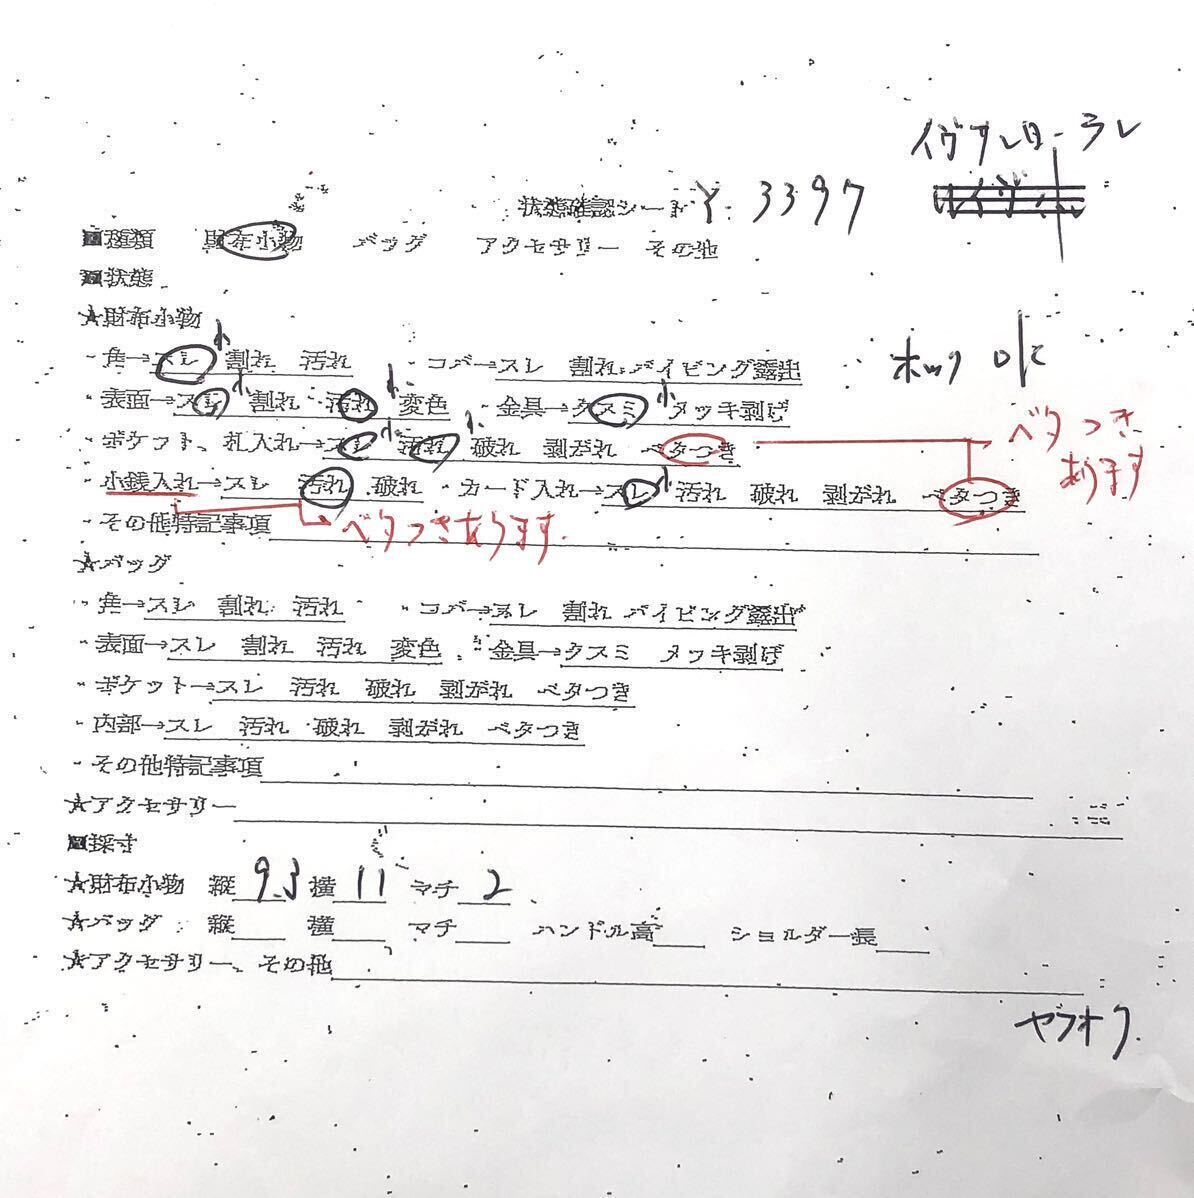 イヴサンローラン
状態確認シート Y-3397
■種類 財布小物 バッグ アクセサリー その他
■状態
★財布小物
・角→スレ 小 割れ 汚れ ・コバ→スレ 割れ パイピング露出
ホック OK
・表面→スレ 小 割れ 汚れ 小 変色 ・金具→クスミ 小 メッキ剥げ
・ポケット、札入れ→スレ 小 汚れ 小 破れ 剥がれ ベタつき
ベタつき
あります
・小銭入れ→スレ 汚れ 破れ ・カード入れ→スレ 小 汚れ 破れ 剥がれ ベタつき
・その他特記事項
ベタつきあります
★バッグ
・角→スレ 割れ 汚れ ・コバ→スレ 割れ パイピング露出
・表面→スレ 割れ 汚れ 変色 ・金具→クスミ メッキ剥げ
・ポケット→スレ 汚れ 破れ 剥がれ ベタつき
・内部→スレ 汚れ 破れ 剥がれ ベタつき
・その他特記事項
★アクセサリー
■採寸
★財布小物 縦 9.3 横 11 マチ 2
★バッグ 縦 横 マチ ハンドル高 ショルダー長
★アクセサリー、その他
ヤフオク